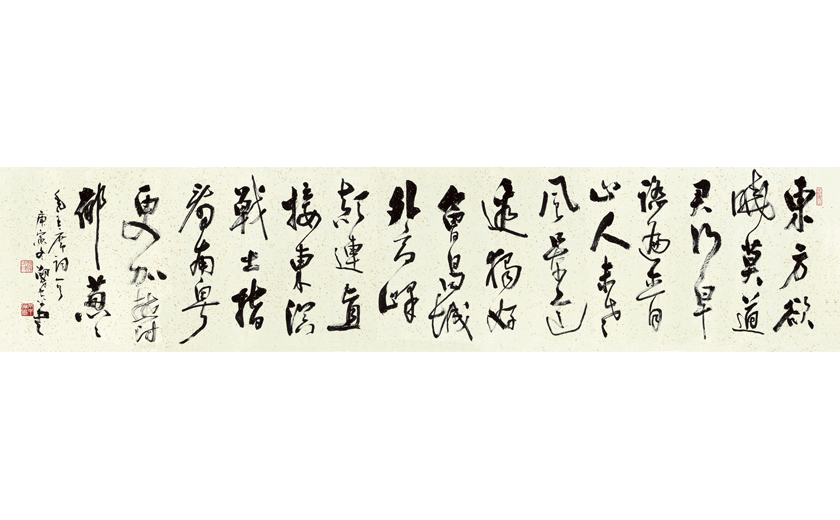 東方欲
曉莫道
君行早
踏遍青
山人未老
風景這
邊獨好
會昌城
外高峰
顛連直
接東溟
戰士指
看南粵
更加鬱
郁蔥〻
毛主席詞一首
庚寅